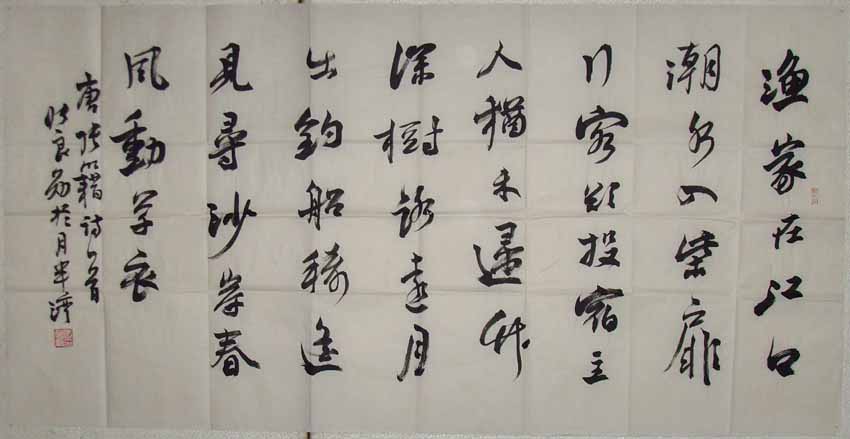 漁家在江口
潮水入柴扉
行客欲投宿主
人猶未歸竹
深樹路遠月
出釣船稀遙
見尋沙岸春
風動草衣
唐張籍詩一首
張良勛於月半